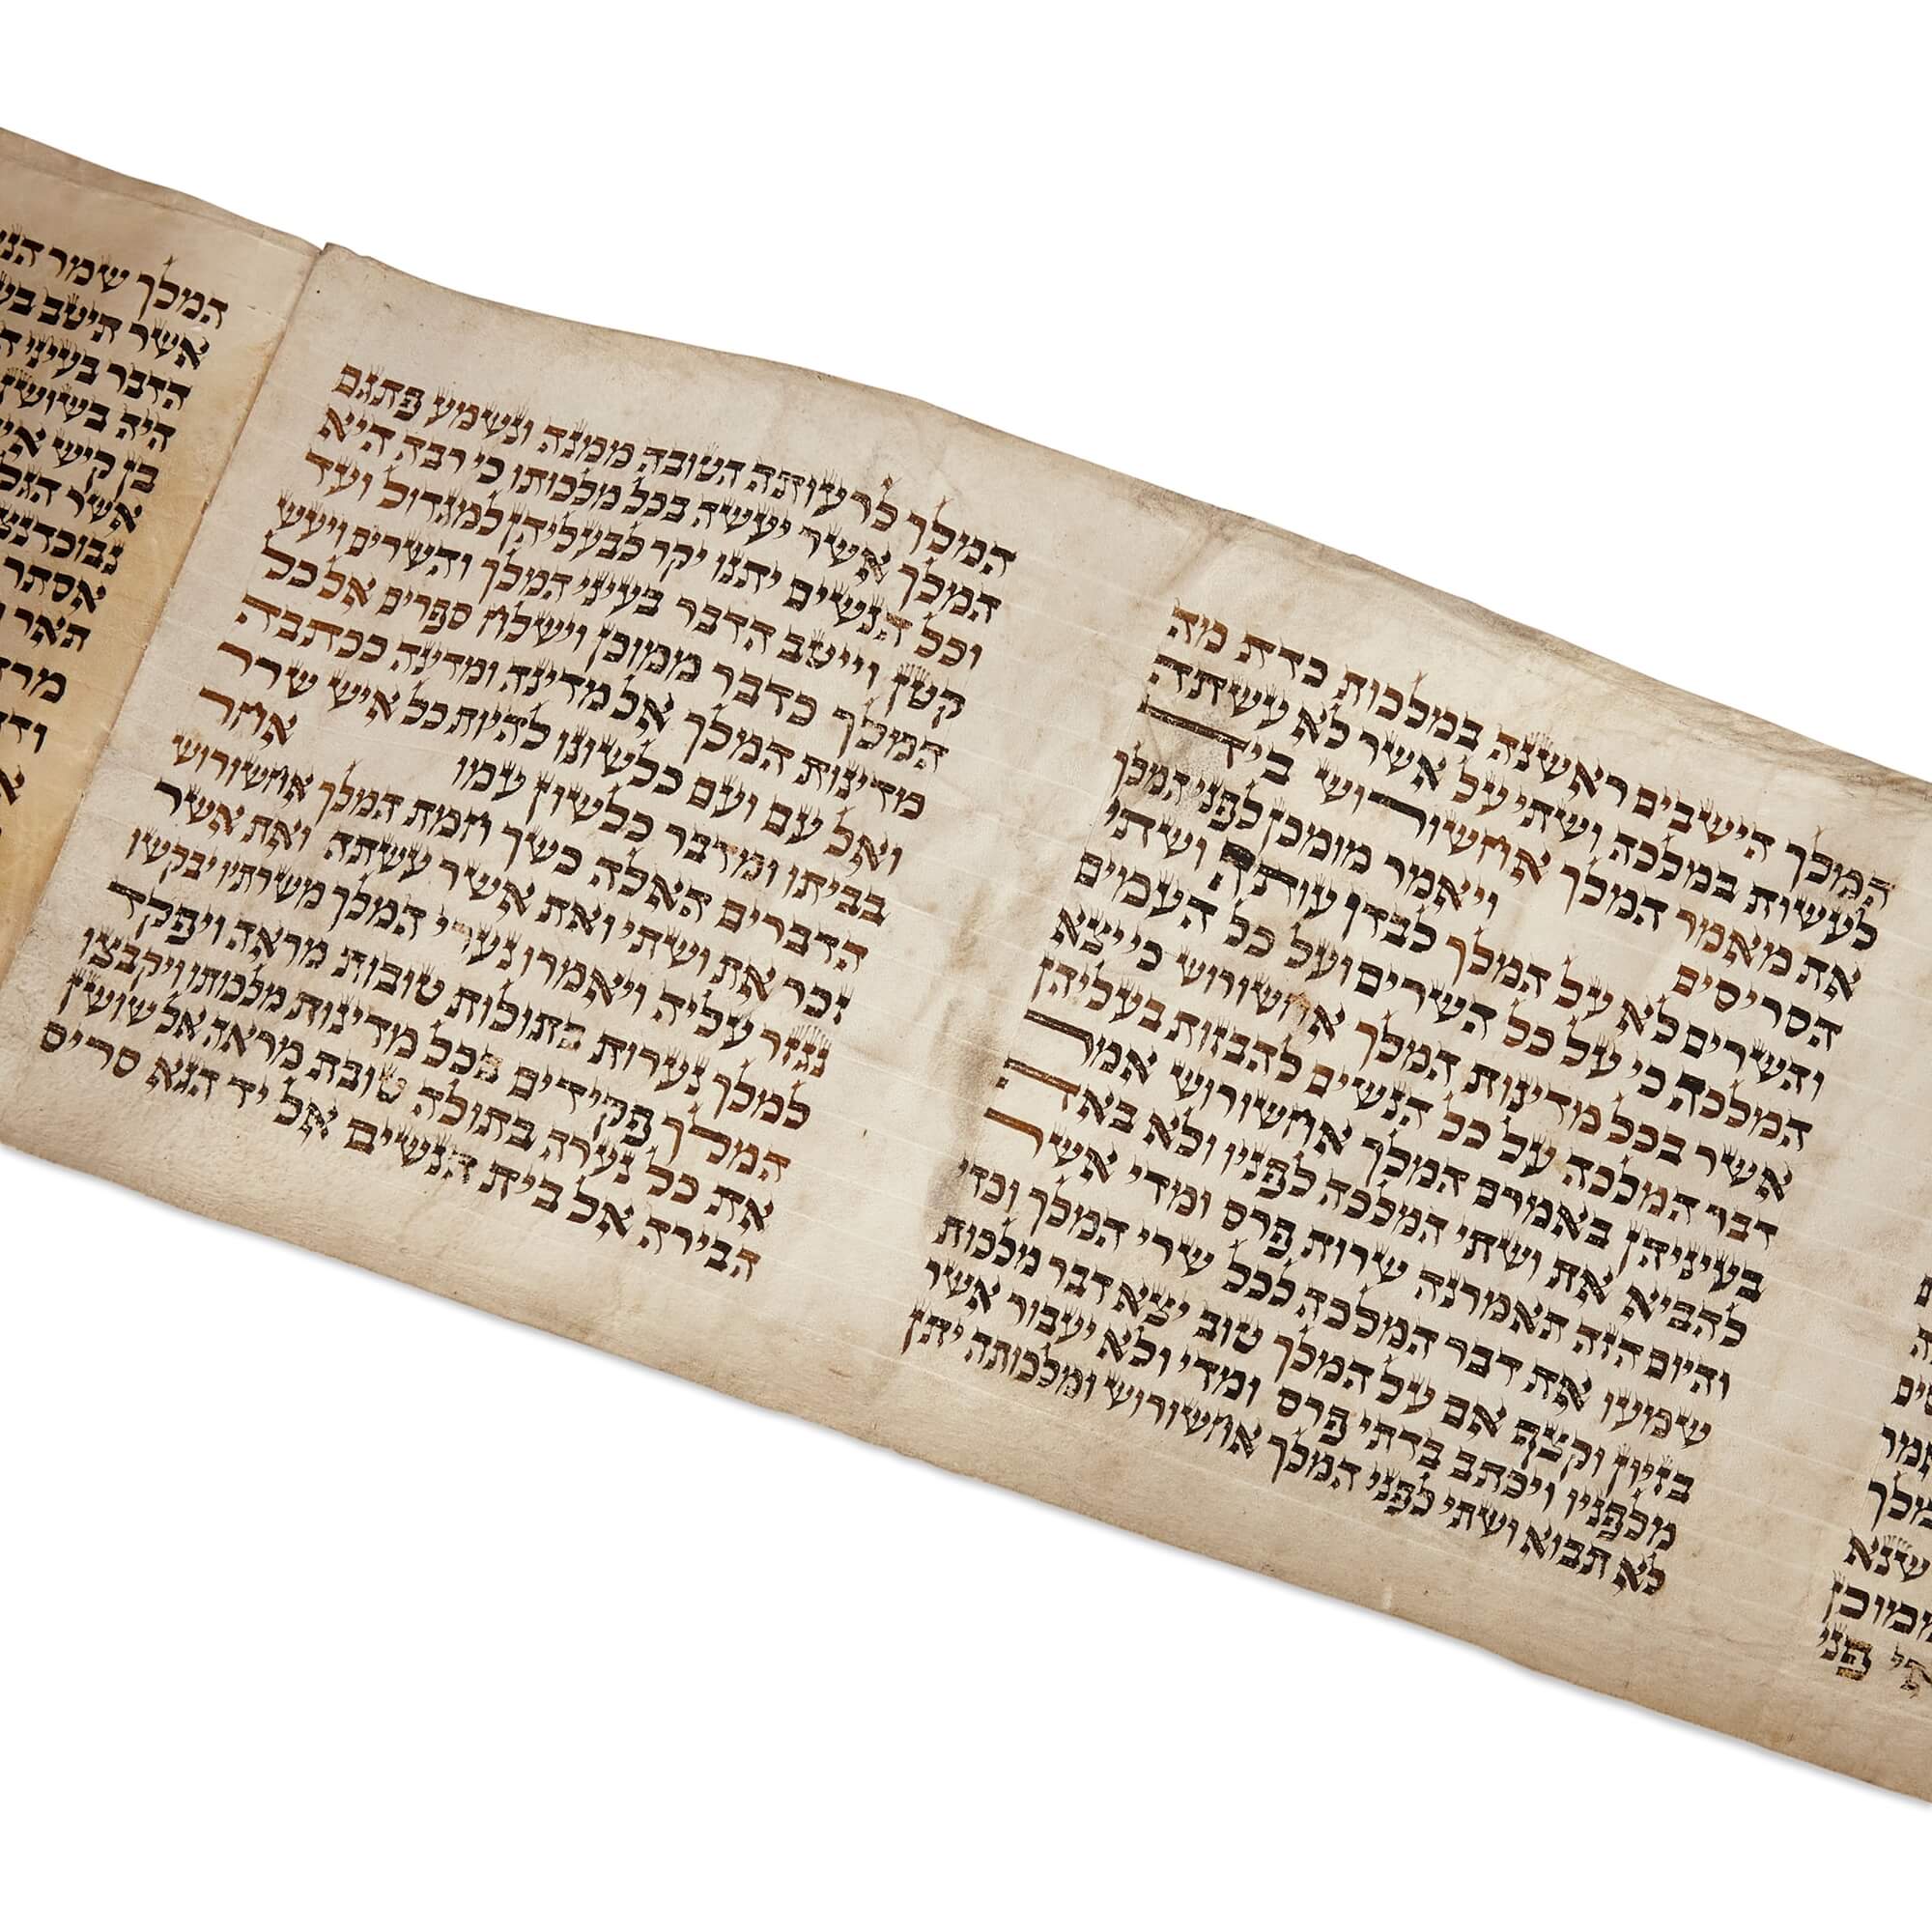 ממוכן
פני
המלך הישבים ראשנה במלכות כדת מה
לעשות במלכה ושתי על אשר לא עשתה
את מאמר המלך אחשורוש ביד
הסריסים ויאמר מומכן לפני המלך
והשרים לא על המלך לבדו עותה ושתי
המלכה כי על כל השרים ועל כל העמים
אשר בכל מדינות המלך אחשורוש כי יצא
דבר המלכה על כל הנשים להבזות בעליהן
בעיניהן באמרם המלך אחשורוש אמר
להביא את ושתי המלכה לפניו ולא באה
והיום הזה תאמרנה שרות פרס ומדי אשר
שמעו את דבר המלכה לכל שרי המלך וכדי
בזיון וקצף אם על המלך טוב יצא דבר מלכות
מלפניו ויכתב בדתי פרס ומדי ולא יעבור אשר
לא תבוא ושתי לפני המלך אחשורוש ומלכותה יתן
המלך לרעותה הטובה ממנה ונשמע פתגם
המלך אשר יעשה בכל מלכותו כי רבה היא
וכל הנשים יתנו יקר לבעליהן למגדול ועד
קטן וייטב הדבר בעיני המלך והשרים ויעש
המלך כדבר ממוכן וישלח ספרים אל כל
מדינות המלך אל מדינה ומדינה ככתבה
ואל עם ועם כלשונו להיות כל איש שרר
בביתו ומדבר כלשון עמו אחר
הדברים האלה כשך חמת המלך אחשורוש
זכר את ושתי ואת אשר עשתה ואת אשר
נגזר עליה ויאמרו נערי המלך משרתיו יבקשו
למלך נערות בתולות טובות מראה ויפקד
המלך פקידים בכל מדינות מלכותו ויקבצו
את כל נערה בתולה טובת מראה אל שושן
הבירה אל בית הנשים אל יד הגא סריס
המלך שמר
אשר תיטב
הדבר בעיני
היה בשושן
בן קיש
אשר
אסתר